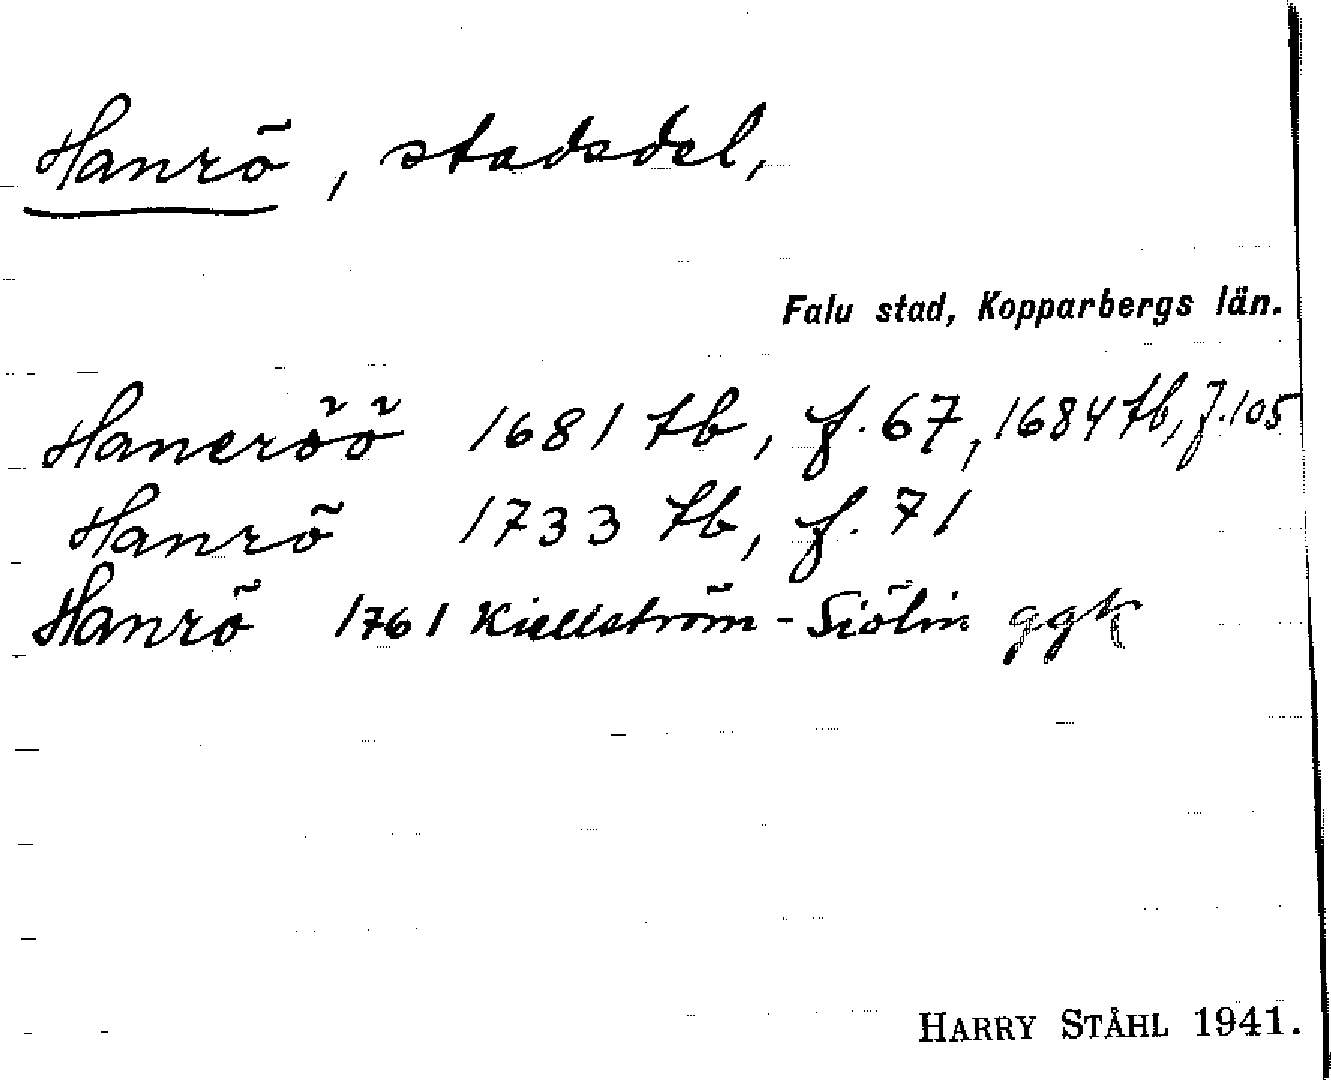 Hanrö, stadsdel,
Falu stad, Kopparbergs län.
Haneröö 1681 tb, f. 67, 1684 tb, f. 105
Hanrö 1733 tb, f. 71
Hanrö 1761 Kiellström-Siölin ggk
HARRY STÅHL 1941.